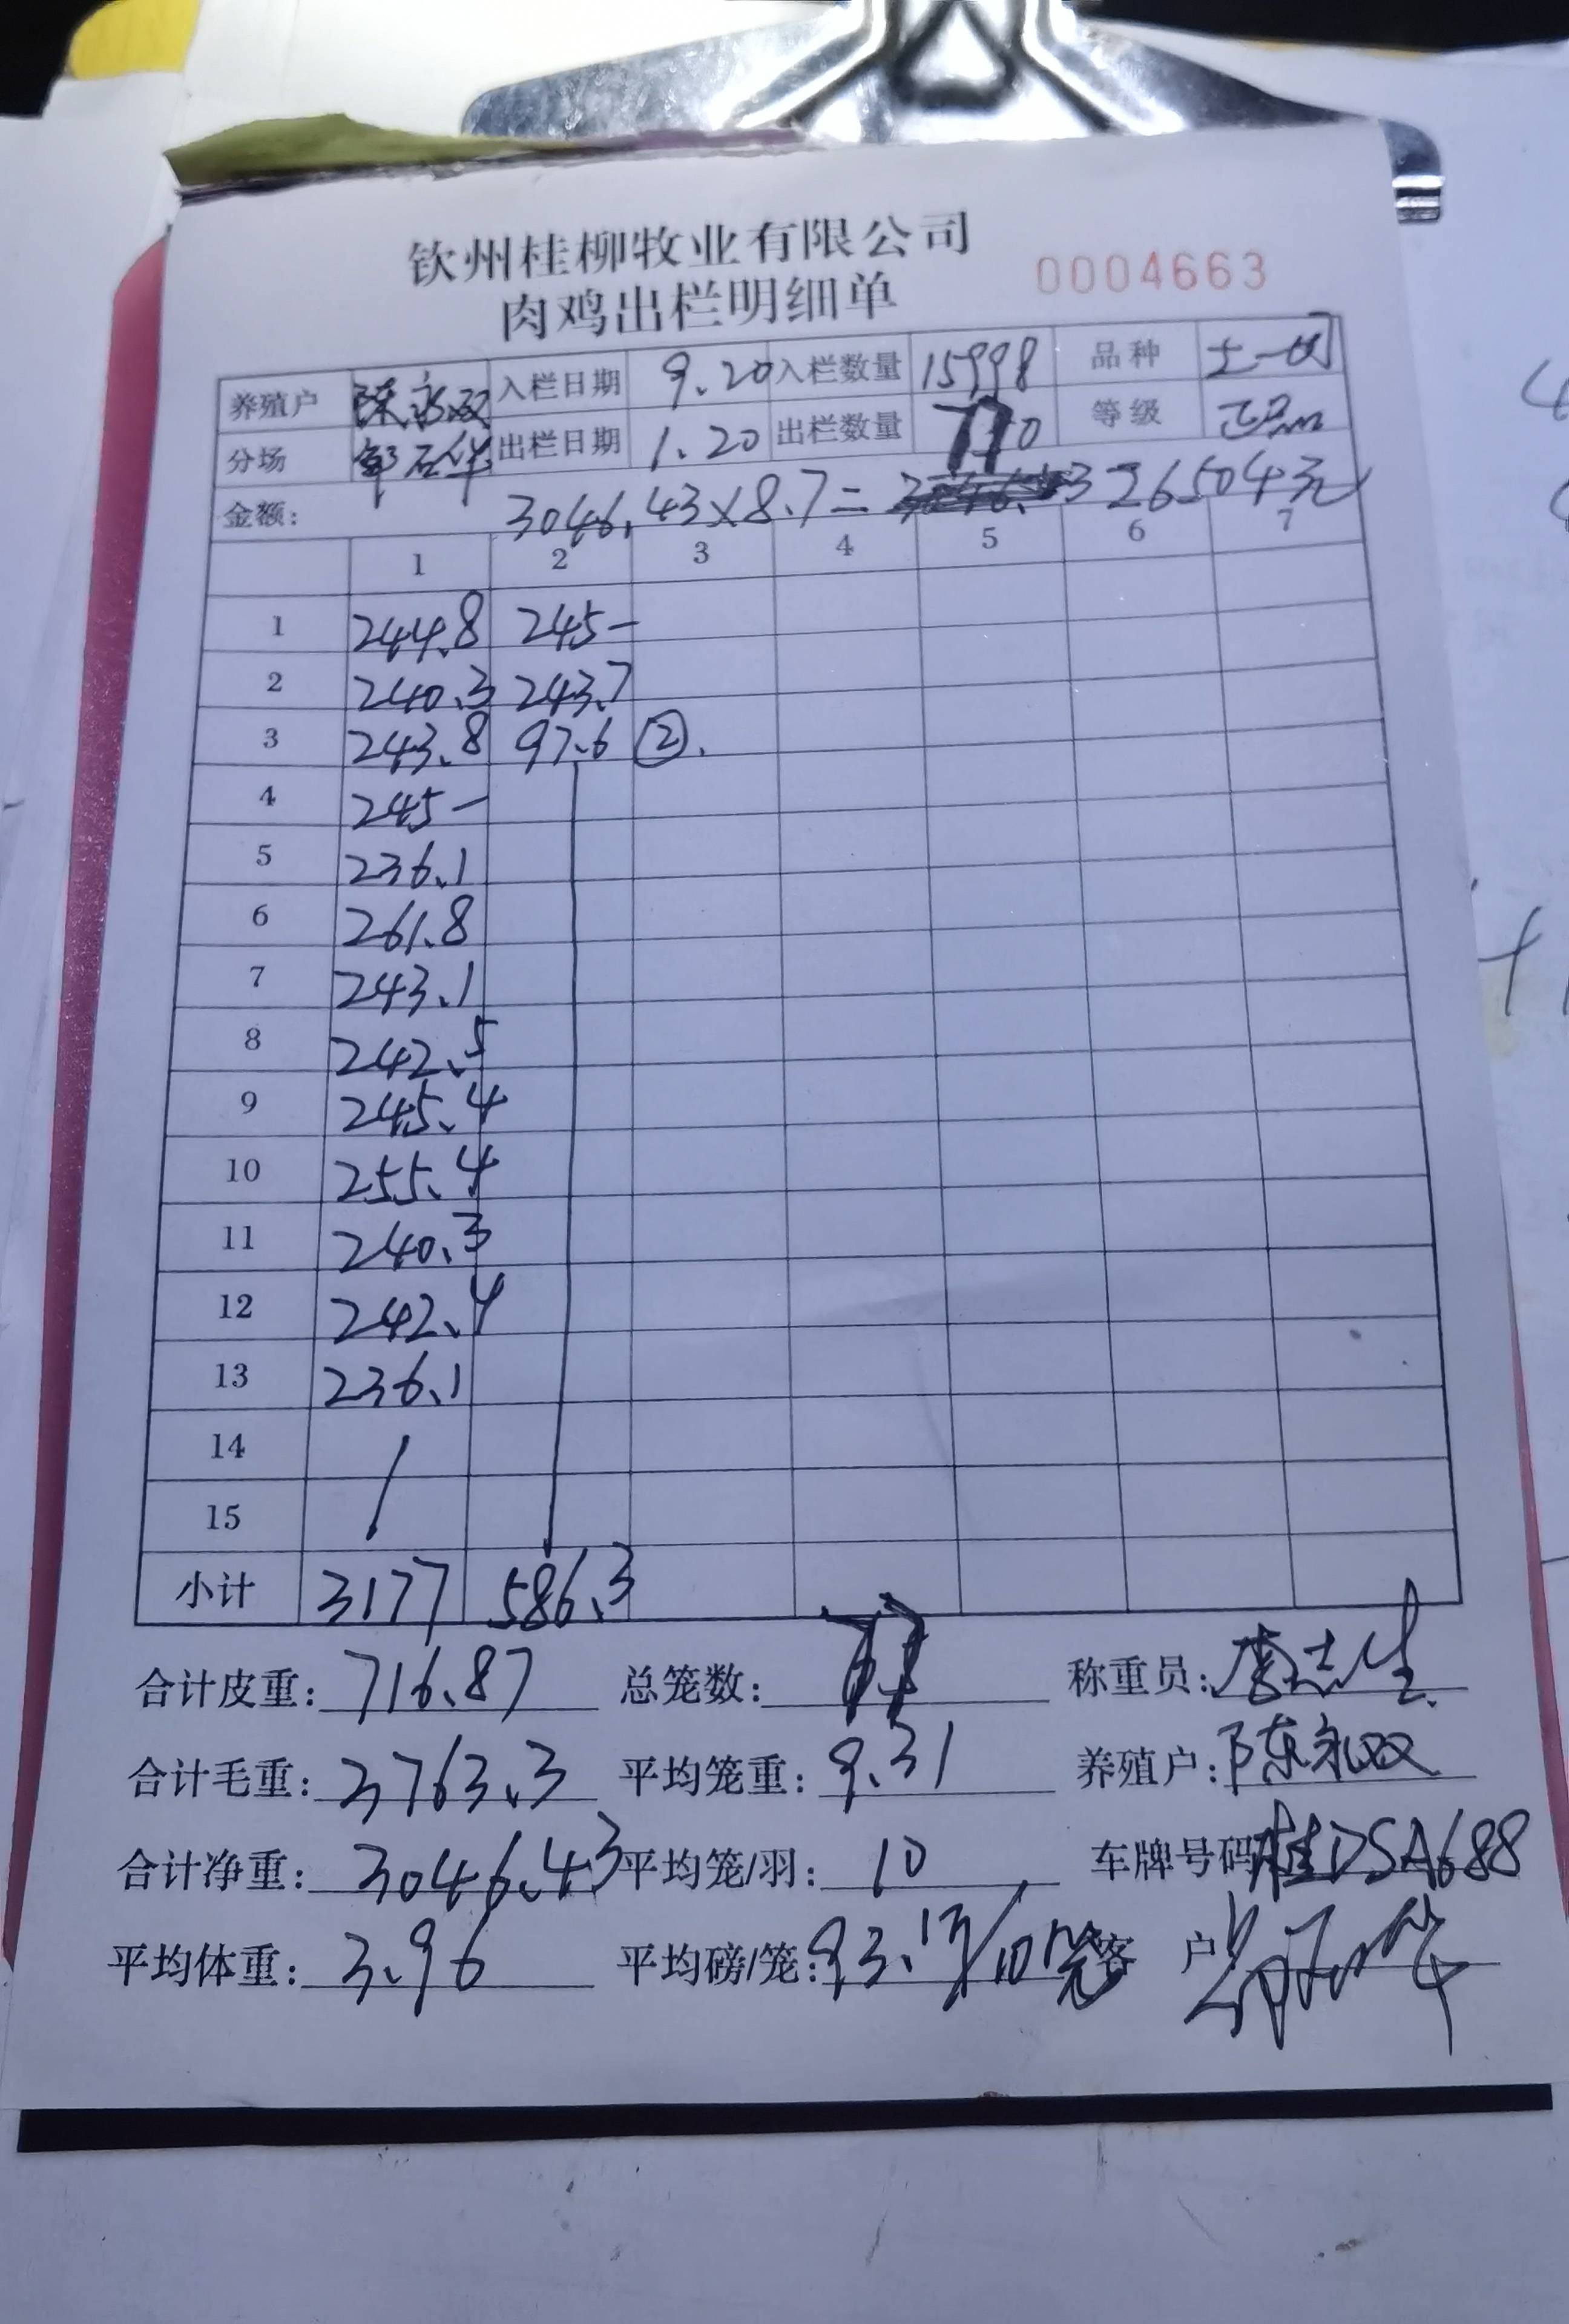 钦州桂柳牧业有限公司
肉鸡出栏明细单 0004663
养殖户 陈永双 入栏日期 9.20 入栏数量 15998 品种 土一
分场 出栏日期 1.20 出栏数量 770 等级 正品
金额: 3046.43×8.7= 26504元
1 2 3 4 5 6 7
1 244.8 245-
2 240.3 243.7
3 243.8 97.6 ②.
4 245-
5 236.1
6 261.8
7 243.1
8 242.5
9 245.4
10 255.4
11 240.3
12 242.4
13 236.1
14
15
小计 3177 586.3
合计皮重: 716.87 总笼数: 77 称重员: 李志生
合计毛重: 3763.3 平均笼重: 9.31 养殖户: 陈永双
合计净重: 3046.43 平均笼/羽: 10 车牌号码 桂DSA688
平均体重: 3.96 平均磅/笼: 93.17/10笼 客 户